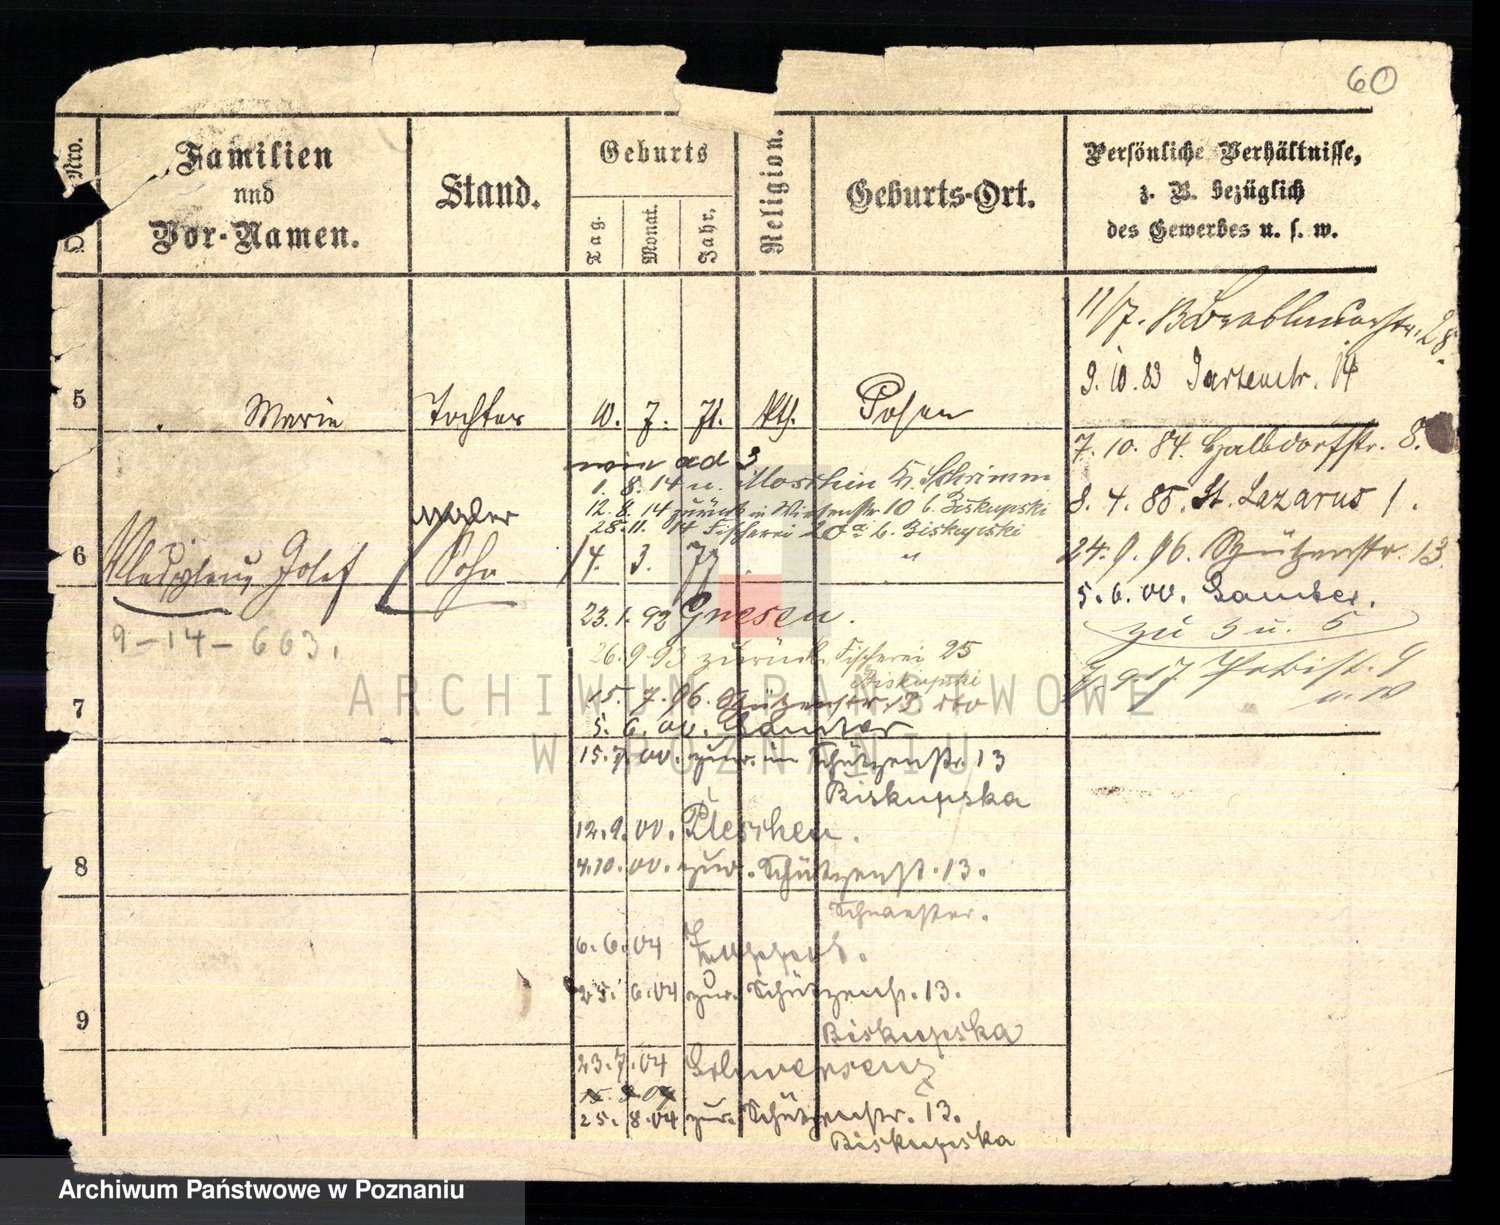 60
Nro.
Familien
und
Vor-Namen.
Stand.
Geburts
Tag.
Monat.
Jahr.
Religion.
Geburts-Ort.
Persönliche Verhältnisse,
z. B. bezüglich
des Gewerbes u. s. w.
11/7.
28.
9.10.83 Gartenstr. 14
5 Marie Tochter 10. 7. 71. kth. Posen
7. 10. 84. Halbdorfstr. 8.
8. 4. 85. St. Lazarus 1.
24. 9. 96. Schützenstr. 13.
5. 6. 00. Samter.
zu 3 u. 5
wie ad 3
1. 8. 14 n. Moschin K. Schrimm
12. 8. 14 zurück n Wiesenstr 10 b. Biskupski
28. 11. 14 Fischerei 20a b. Biskupski
6 Josef Sohn 14. 3. 77 "
9-14-663.
23. 1. 92 Gnesen.
26. 9. 93 zurück. Fischerei 25
Biskupski
7
15. 7. 96. Schützenstr. 13 dto
5. 6. 00. Samter
15. 7. 00. zur. in Schützenstr. 13
Biskupska
12. 9. 00. Pleschen.
8
4. 10. 00. zur. Schützenst. 13.
Schwester.
6. 6. 04
25. 6. 04 zur. Schützenst. 13.
Biskupska
9
23. 7. 04 Schwersenz
25. 8. 04 zur. Schützenstr. 13.
Biskupska
ARCHIWUM PAŃSTWOWE
W POZNANIU
Archiwum Państwowe w Poznaniu